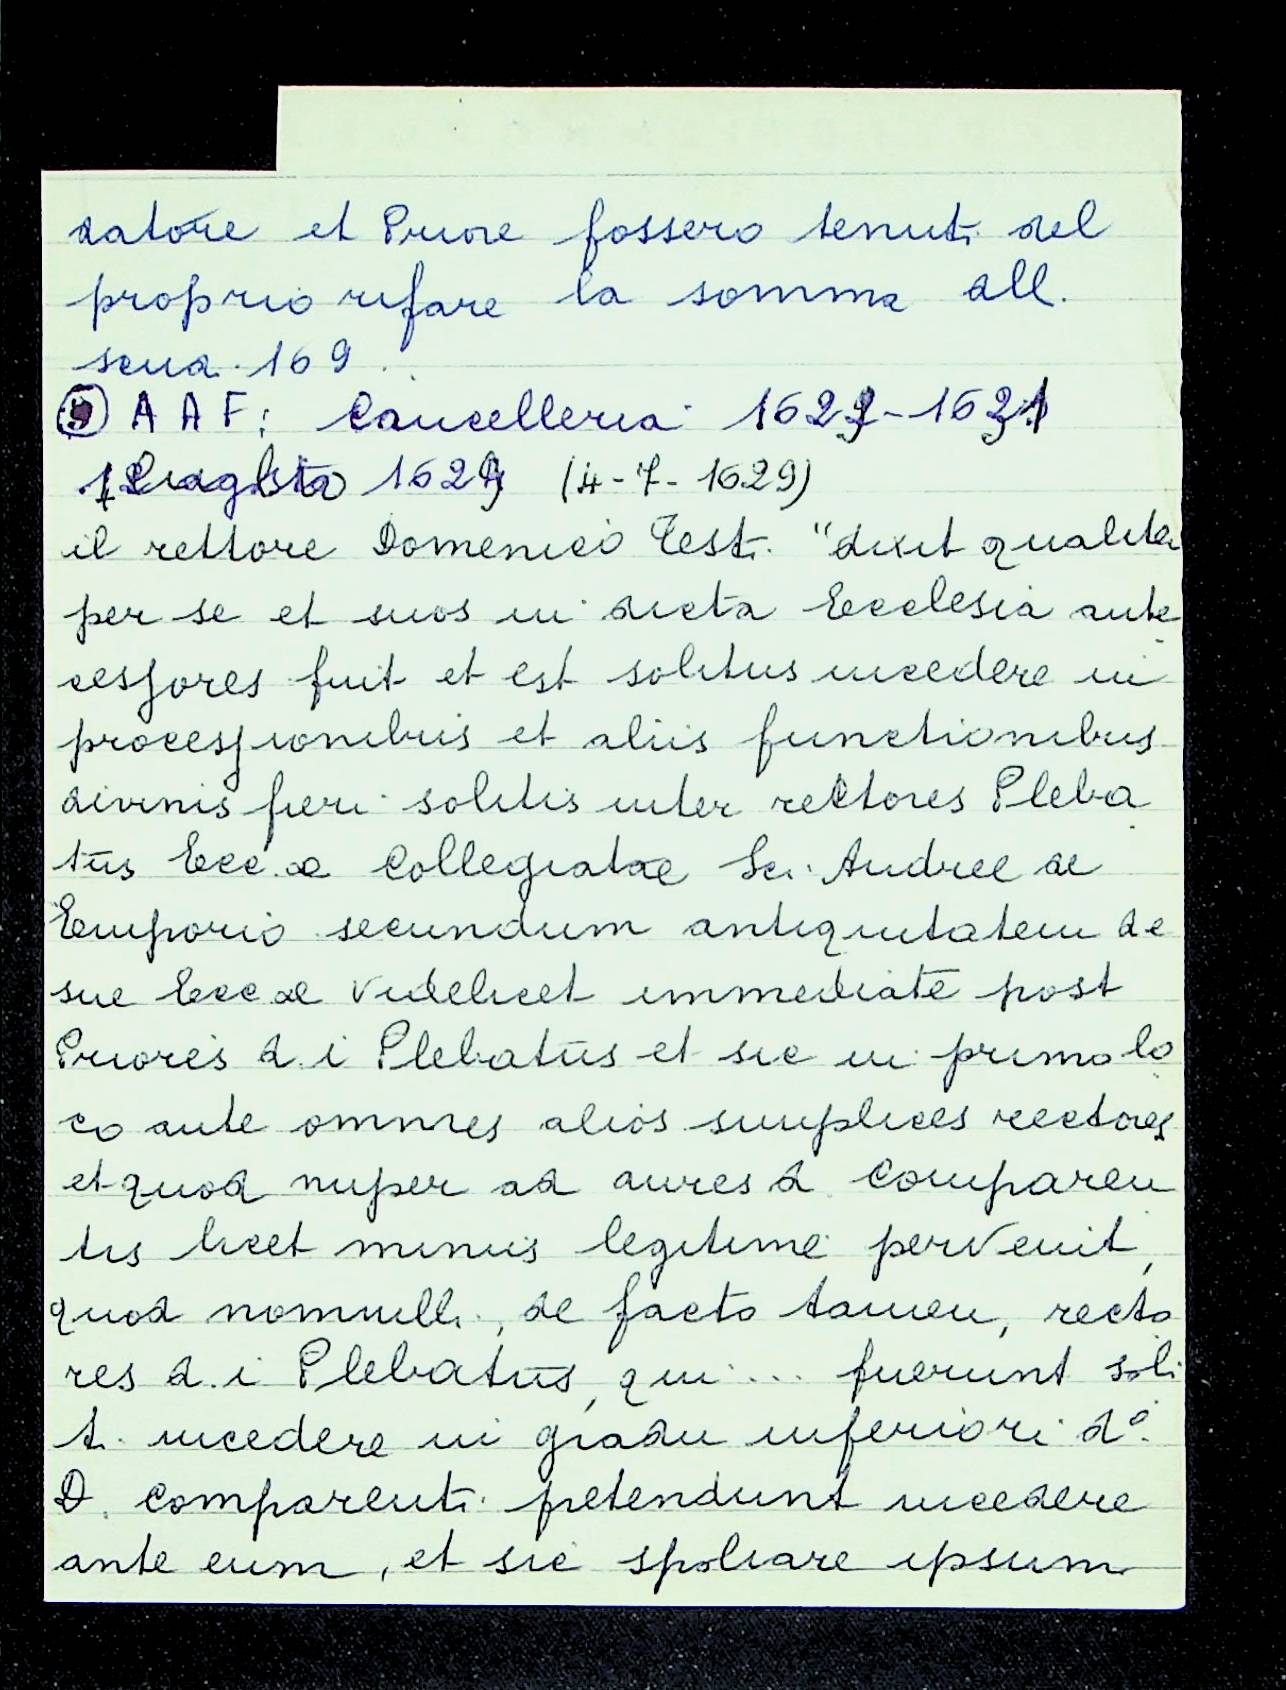 datore et Priore fossero tenuti del
proprio rifare la somma all.
scudi 169.
A A F: Cancelleria 1629-1631
1629 (4-7-1629)
il rettore Domenico Testi "dixit qualiter
per se et suos in dicta Ecclesia ante
cessores fuit et est solitus incedere in
processionibus et aliis functionibus
divinis fieri solitis inter rectores Pleba
tūs Ecc.æ Collegiatæ Sci. Andree de
Emporio secundum antiquitatem de
sue Eccæ videlicet immediatē post
Priores d.i Plebatūs et sic in primo lo
co ante omnes alios simplices rectores
et quod nuper ad aures d. comparen
tis licet minus legitime pervenit,
quod nonnulli, de facto tamen, recto
res d.i Plebatūs, qui ... fuerunt soli
ti incedere in gradu inferiori d.º
D. comparenti pretendunt incedere
ante eum, et sic spoliare ipsum